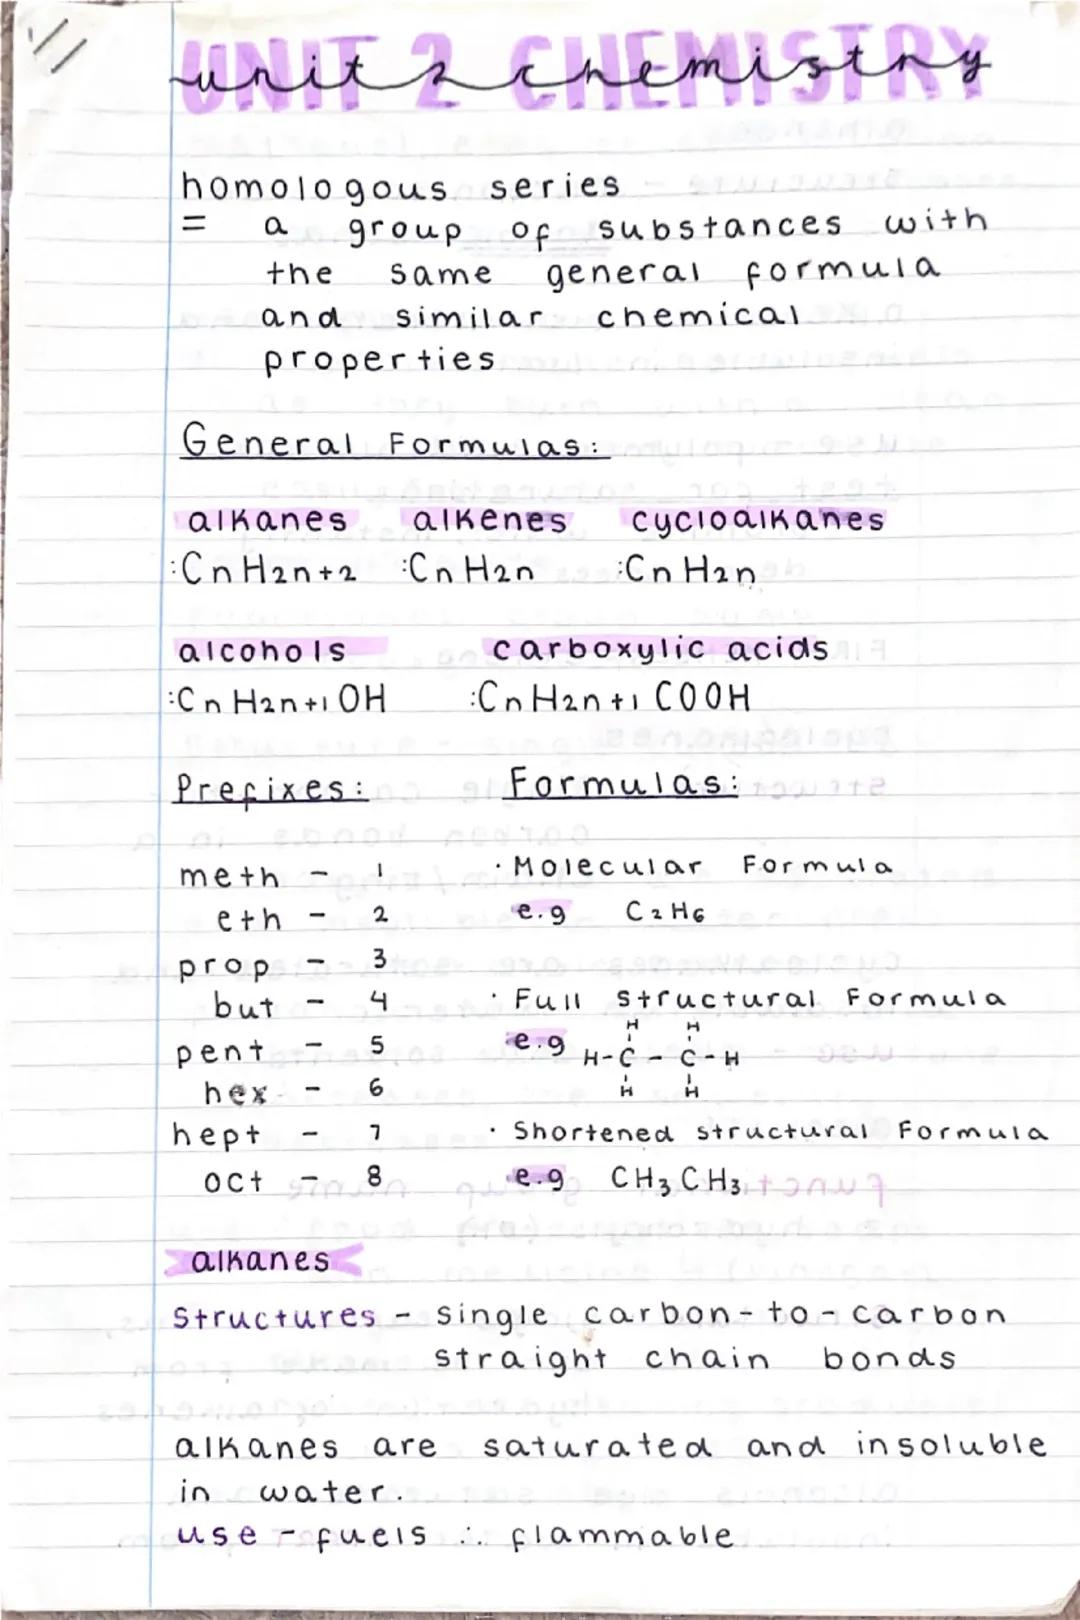 UNIT 2 CHEMISTRY
unit 2 chemistry
homologous series
= a group of substances with
the same general formula
and similar chemical
properties
General Formulas:
alkanes alkenes cycloalkanes
:CnH2n+2 :CnH2n :CnH2n
alcohols carboxylic acids
:CnH2n+1OH :CnH2n+1COOH
Prefixes: Formulas:
meth - 1 · Molecular Formula
eth - 2 e.g C2H6
prop - 3
but - 4 · Full structural Formula
H H
pent - 5 e.g H-C-C-H
hex - 6 H H
hept - 7 · Shortened structural Formula
oct - 8 e.g CH3CH3
alkanes
Structures - single carbon-to-carbon
straight chain bonds
alkanes are saturated and insoluble
in water.
use - fuels ∴ flammable